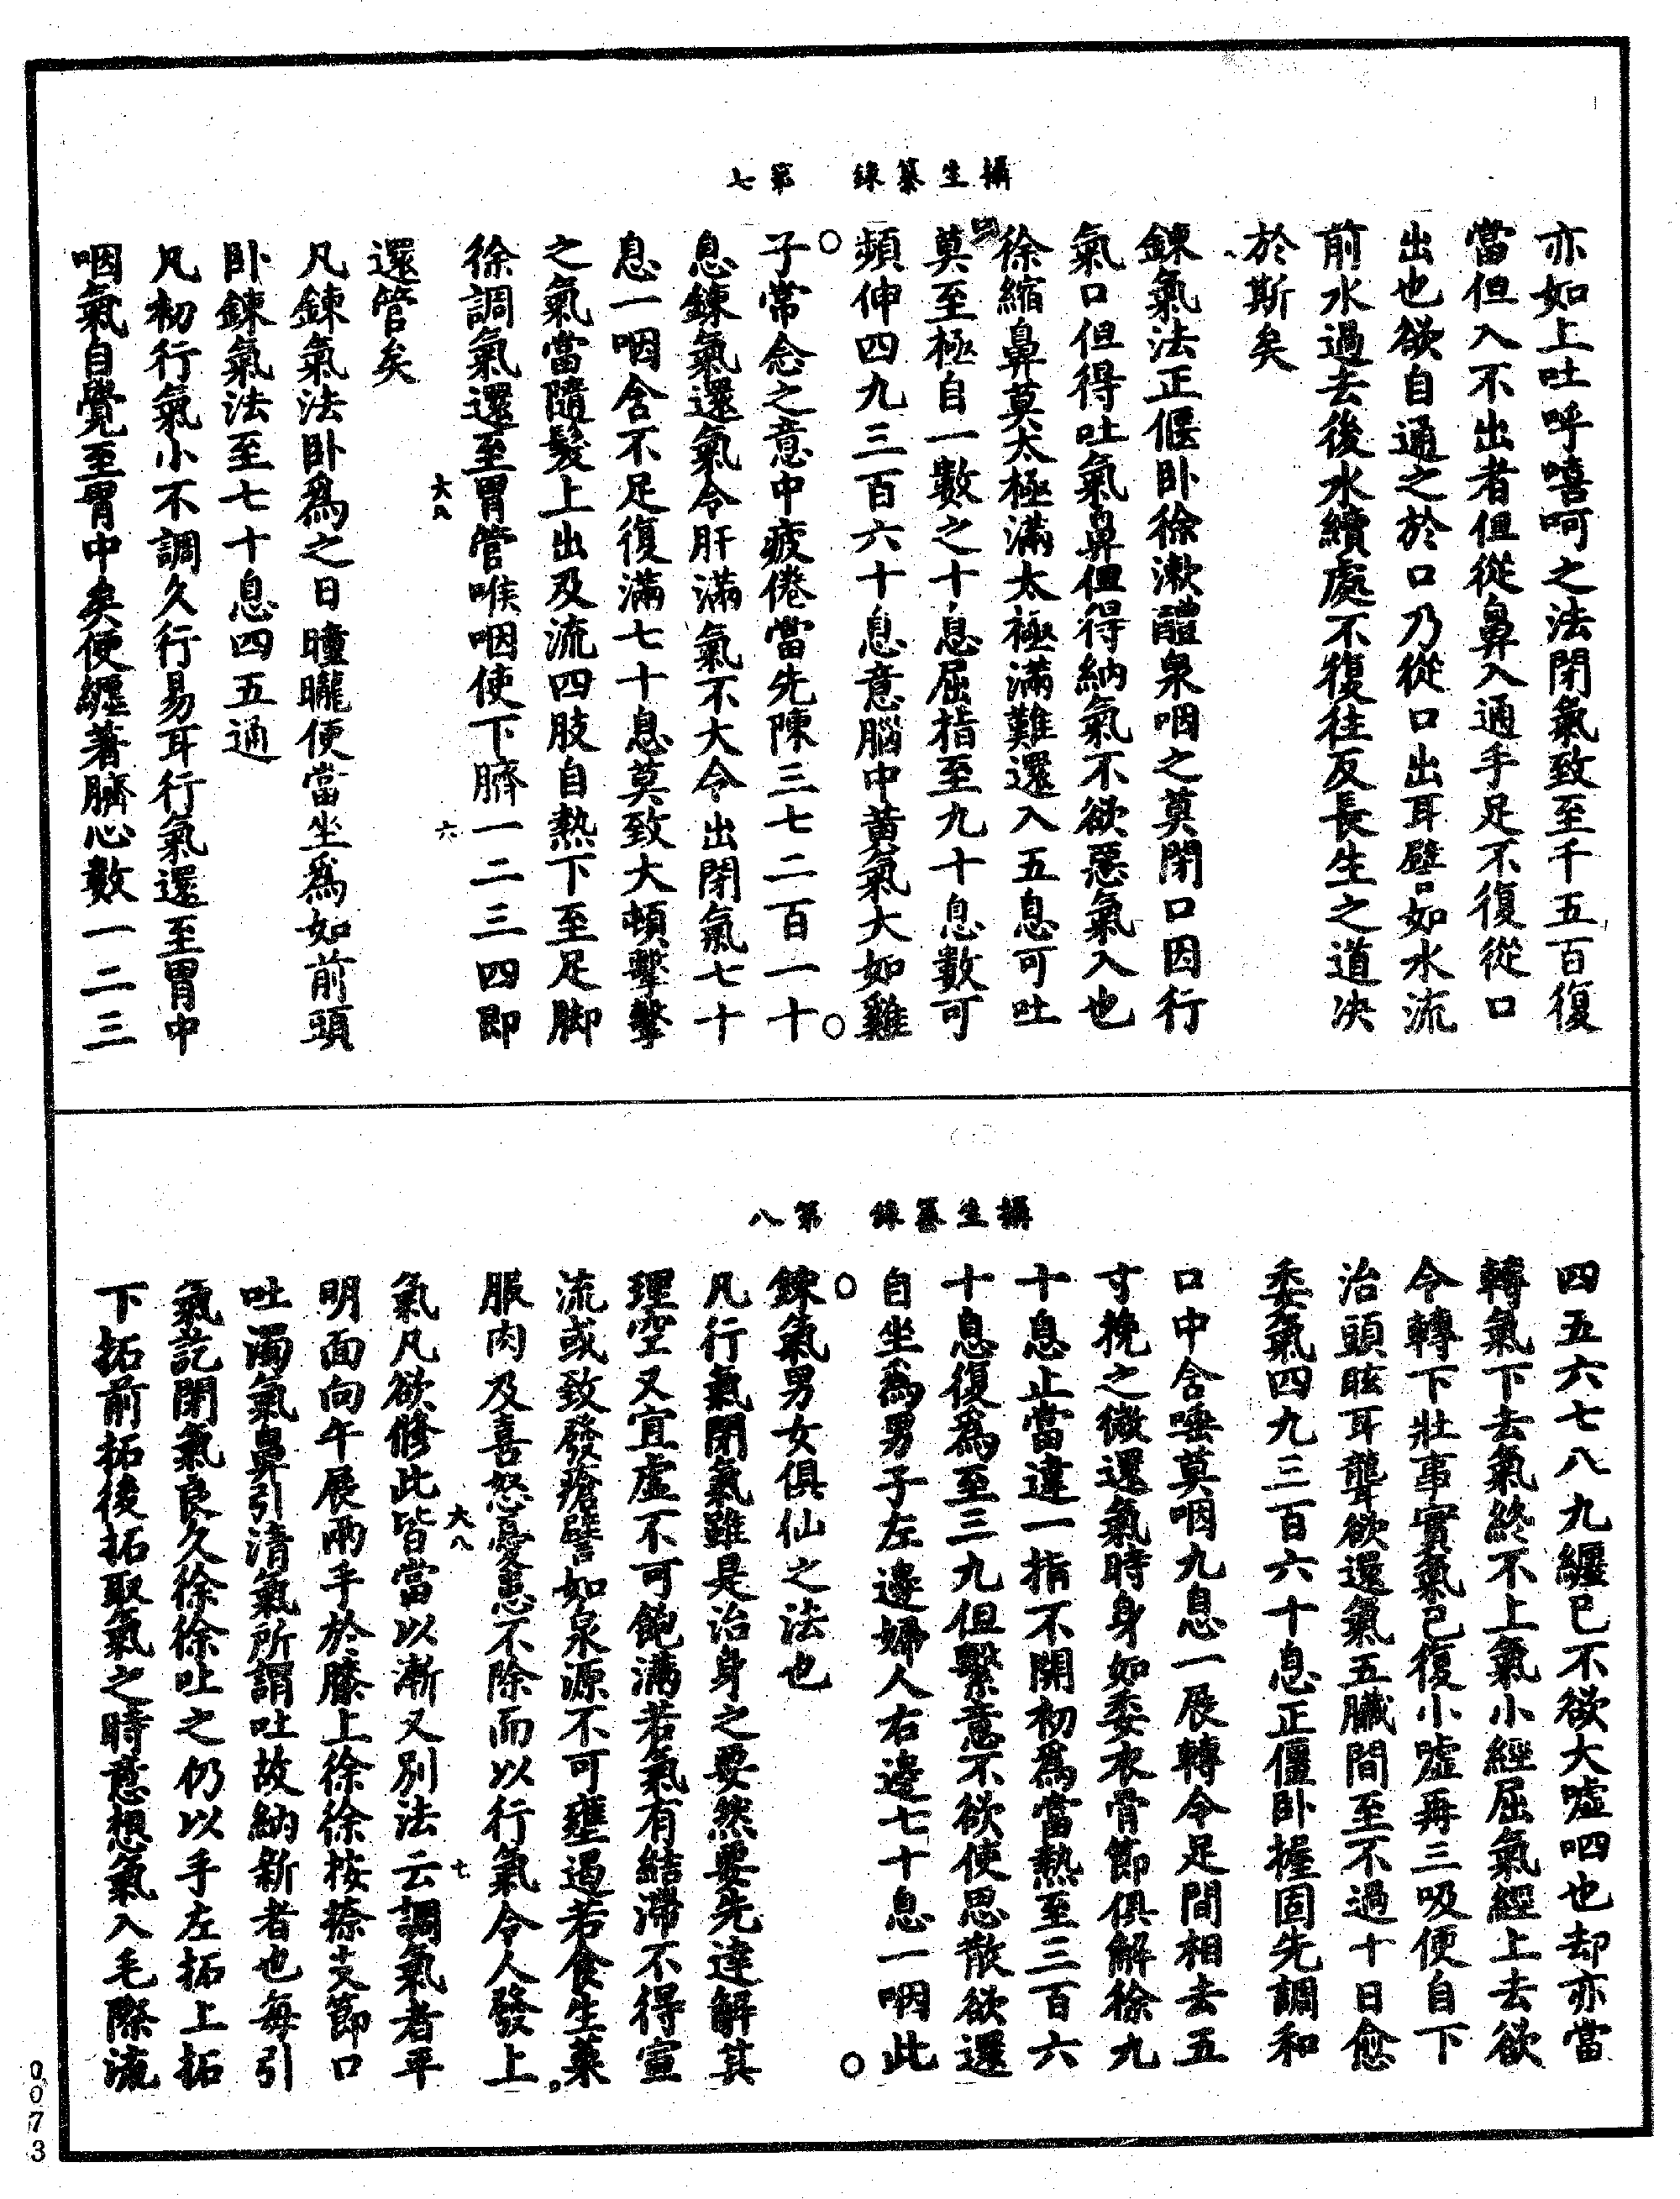 攝生纂錄　第七
亦如上吐呼嘻呵之法閉氣致至千五百復
當但入不出者但從鼻入通手足不復從口
出也欲自通之於口乃從口出出耳壁口如水流
前水過去後水續處不復往反長生之道决
於斯矣
鍊氣法正偃卧徐漱醴泉咽之莫閉口因行
氣口但得吐氣鼻但得納氣不欲惡氣入也
徐縮鼻莫太極滿太極滿難還入五息可吐
莫至極自一數之十息屈指至九十息數可
頻伸四九三百六十息意腦中黃氣大如雞
子常念之意中疲倦當先陳三七二百一十
息鍊氣還氣令肝滿氣不大令出閉氣七十
息一咽含不足復滿七十息莫致大頓擊擊
之氣當隨髮上出及流四肢自熱下至足脚
徐調氣還至胃管喉咽使下臍一二三四即
大八
六
還管矣
凡鍊氣法卧爲之日曈曨便當坐爲如前頭
卧鍊氣法至七十息四五通
凡初行氣小不調久行易耳行氣還至胃中
咽氣自覺至胃中矣便纏著臍心數一二三
攝生纂錄　第八
四五六七八九纏已不欲大噓呬也却亦當
轉氣下去氣終不上氣小經屈氣經上去欲
令轉下下壯事實氣已復小噓再三吸便自下
治頭眩耳聾欲還氣五臟間至不過十日愈
委氣四九三百六十息正僵卧握固先調和
口中含唾莫咽九息一展轉令足間相去五
寸挽之微還氣時身如委衣骨節俱解徐九
十息止當違一指不開初爲當熱至三百六
十息復爲至三九但繫意不欲使思散欲還
自坐爲男子左邊婦人右邊七十息一咽此
鍊氣男女俱仙之法也
凡行氣閉氣雖是治身之要然要先達解其
理空又宜虛不可飽滿若氣有結滯不得宣
流或致發瘡譬如泉源不可壅遏若食生菜
服肉及喜怒憂恚不除而以行氣令人發上
大八
七
氣凡欲修此皆當以漸又別法云調氣者平
明面向午展兩手於膝上徐徐按捺支節口
吐濁氣鼻引清氣所謂吐故納新者也每引
氣訖閉氣良久徐徐吐之仍以手左拓上拓
下拓前拓後拓取氣之時意想氣入毛際流
0073